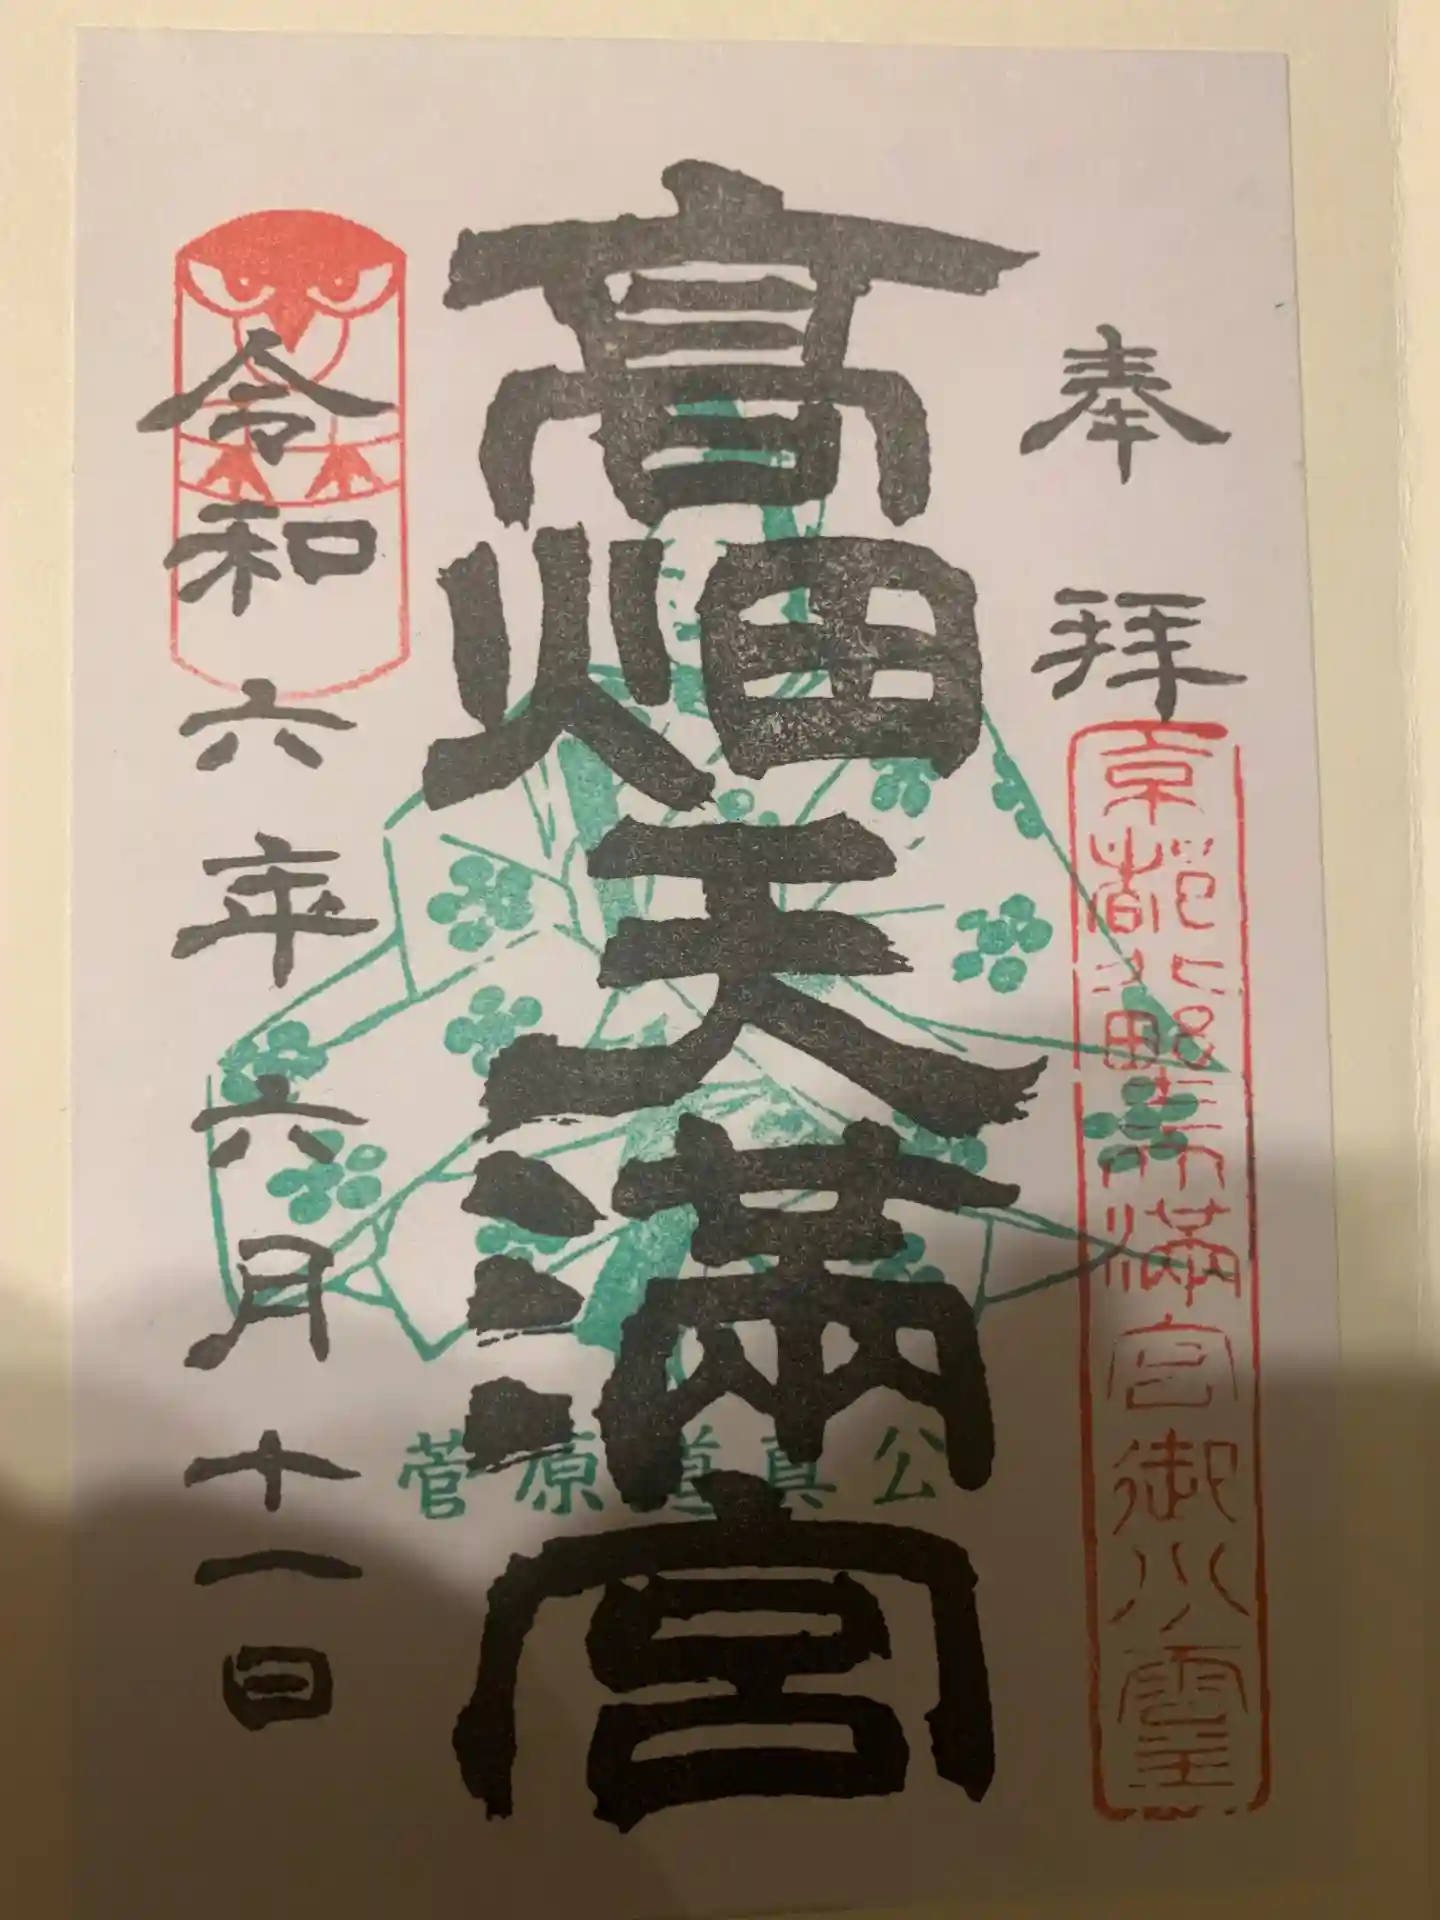 奉拝
京都北野天満宮御分霊
高畑天満宮
菅原道真公
令和六年六月十一日